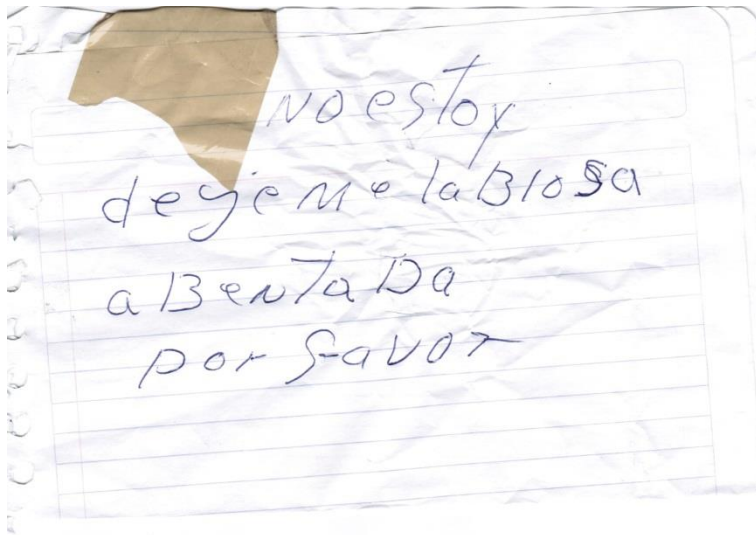 no estoy
dejeme la Blosa
aBentaDa
por favor